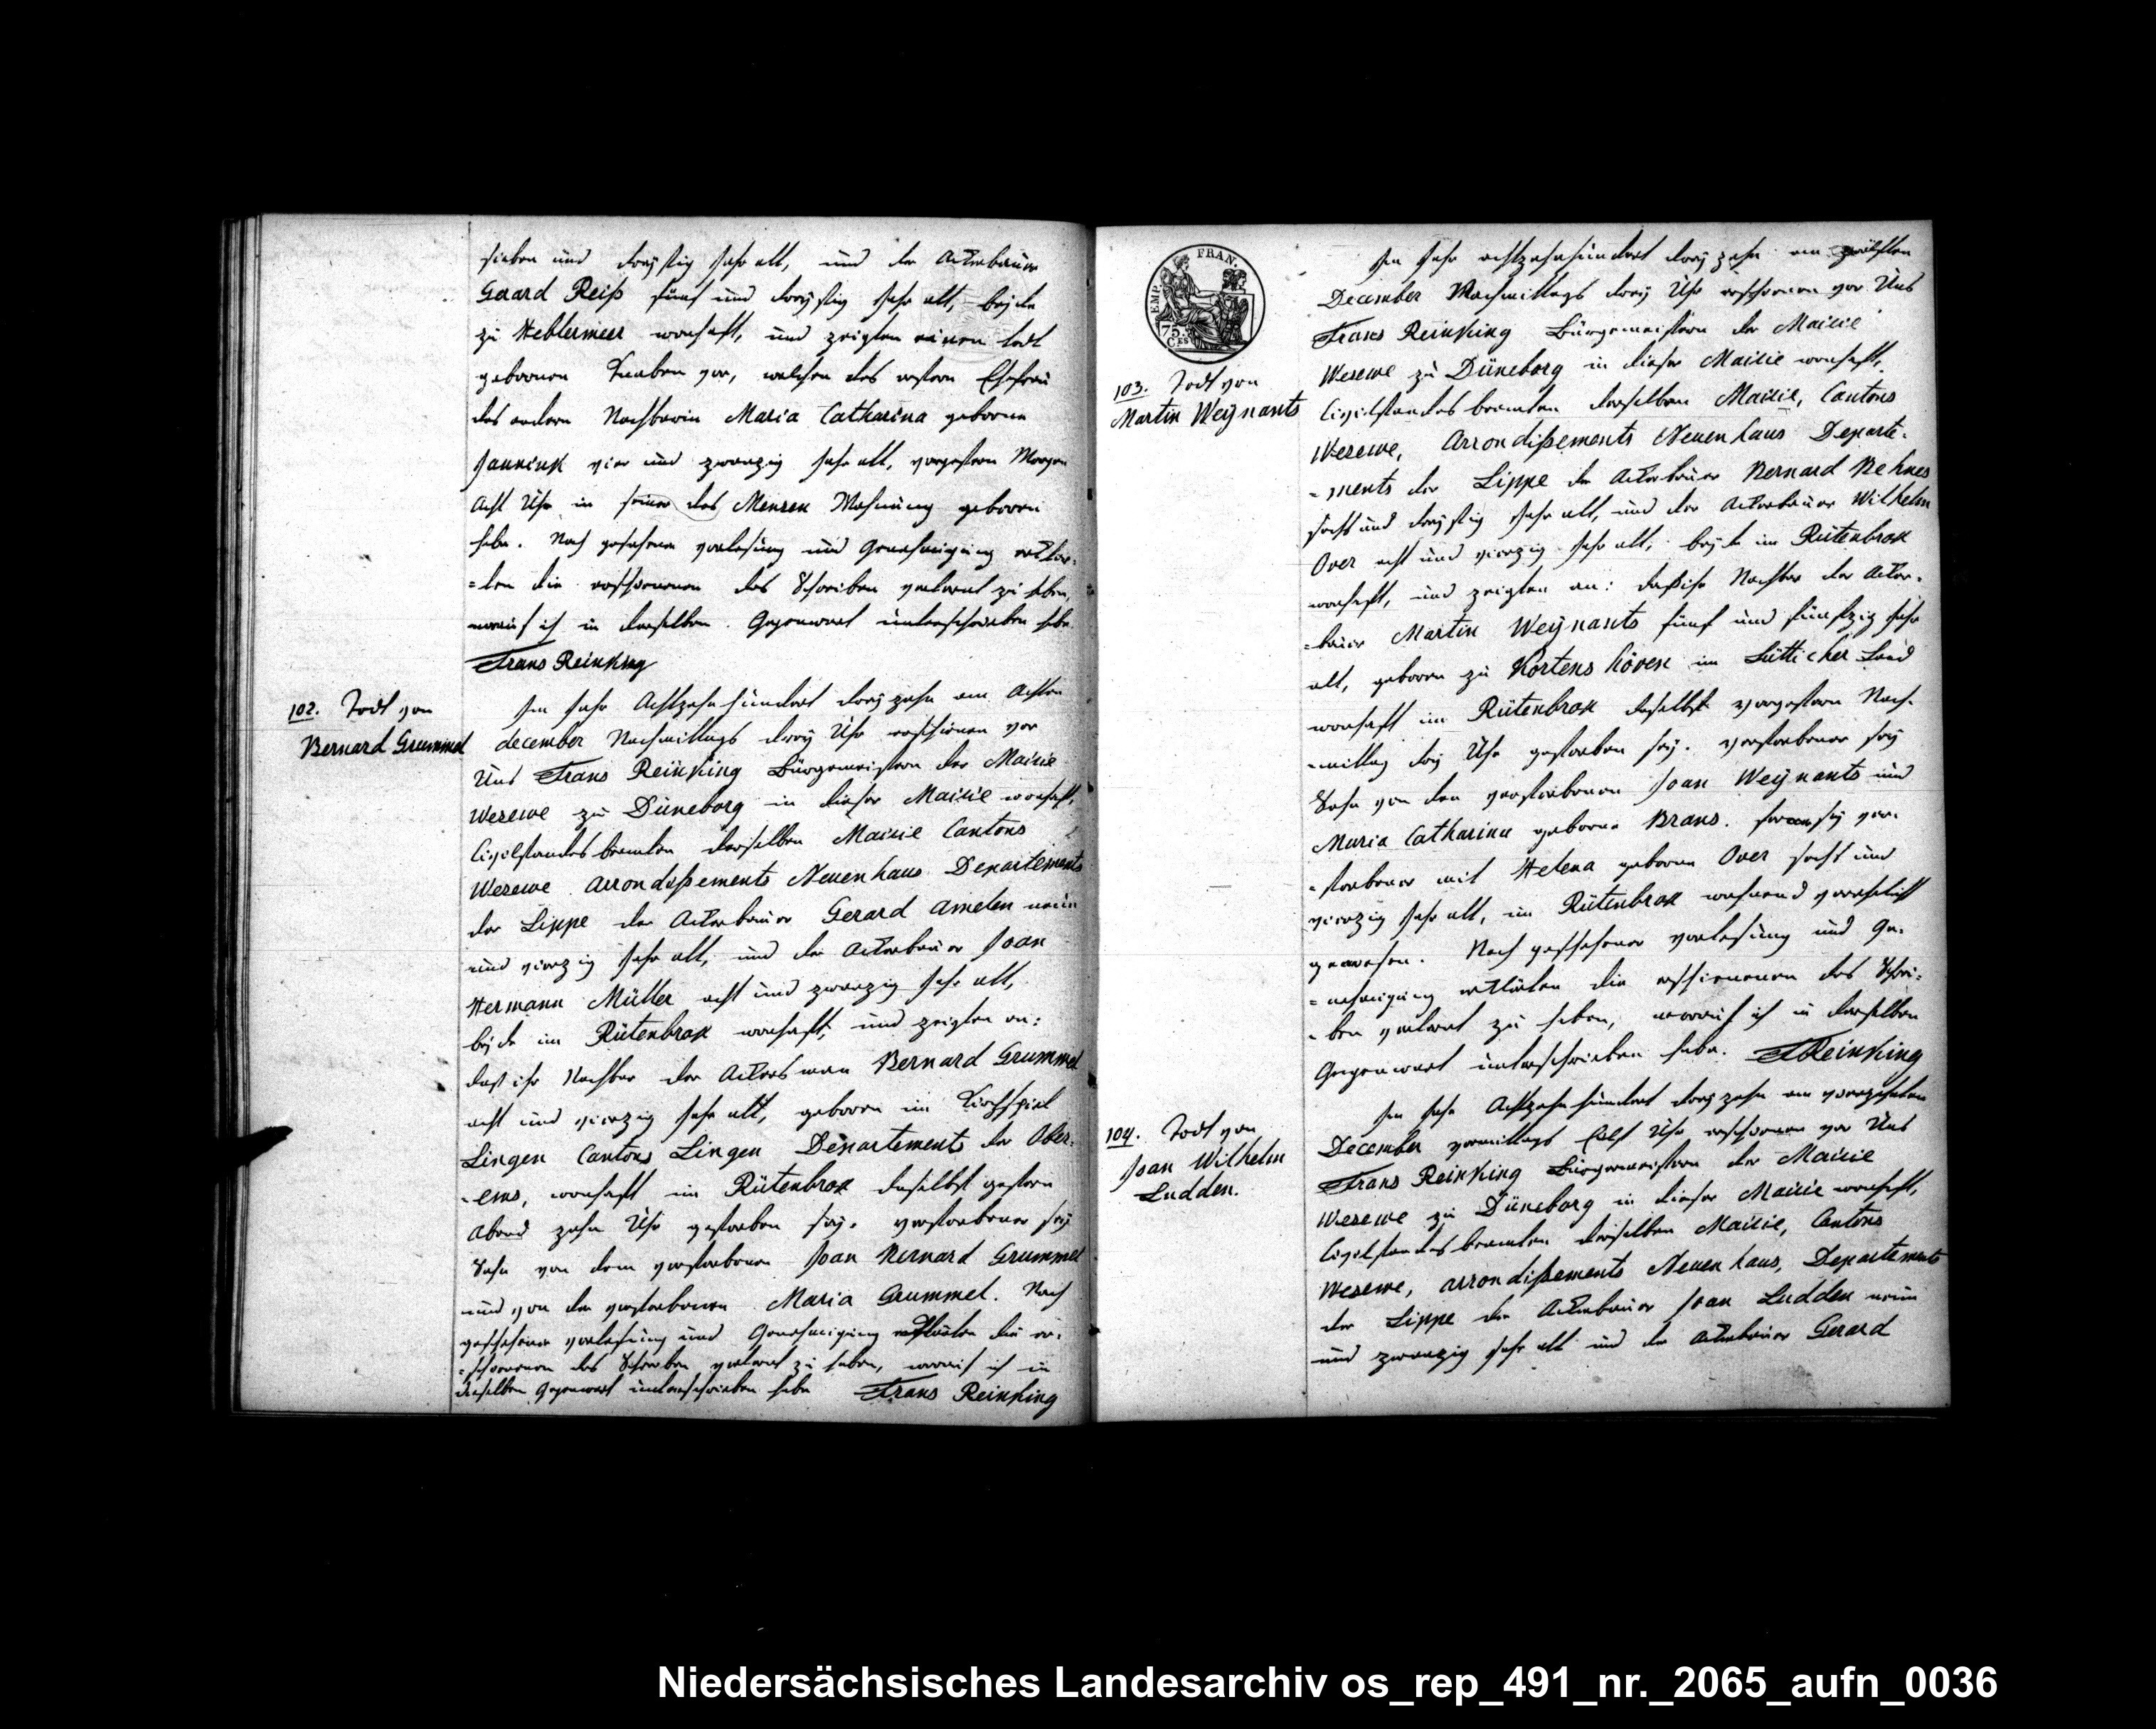 sieben und dreyßig Jahr alt, und der Ackerbauer
Gerard Reiß fünf und dreyßig Jahr alt, beyde
zu Heblermeer wonhaft, und zeigten einen todt
gebornen Knaben vor, welchen des erstern Ehefrau
des andern Nachbarin Maria Catharina geborne
Jannink vier und zwanzig Jahr alt, vorgestern Morgen
Acht Uhr in seiner des Menzen Wohnung geboren
habe. Nach geschener Vorlesung und Genehmigung erklär-
=ten die erschienenen des Schreiben verlernt zu haben,
worauf ich in derselben Gegenwart unterschrieben habe
Frans Reinking
102. Todt von
Bernard Grummel
Im Jahr Achtzehnhundert dreyzehn am Achten
december Nachmittags drey Uhr erschienen vor
Uns Frans Reinking Bürgermeistern der Mairie
Wesewe zu Düneborg in dieser Mairie wonhaft,
Civilstandesbeamten derselben Mairie Cantons
Wesewe Arrondißements Neuenhaus Departements
der Lippe der Ackerbauer Gerard Amelen neun
und vierzig Jahr alt, und der Ackerbauer Joan
Hermann Müller acht und zwanzig Jahr alt,
beyde im Rütenbrok wonhaft, und zeigten an:
daß ihr Nachbar der Ackersman Bernard Grummel
acht und vierzig Jahr alt, geboren im Kirchspiel
Lingen Cantons Lingen Departements der Ober-
-ems, wonhaft im Rütenbrok daselbst gestern
Abend zehn Uhr gestorben sey. Verstorbener sey
Sohn von dem verstorbenen Joan Bernard Grummel
und von der verstorbenen Maria Grummel. Nach
geschehener Vorlesung und Genehmigung erklärten die er-
=schienenen des Schreiben verlernt zu haben, worauf ich in
derselben Gegenwart unterschrieben habe Frans Reinking
EMP. FRAN.
75. CES
103. Todt von
Martin Weÿnants
Im Jahr achtzehnhundert dreyzehn am zwölften
December Nachmittags drey Uhr erschienen vor Uns
Frans Reinking Bürgermeistern der Mairie
Wesewe zu Düneborg in dieser Mairie wonhaft,
Civilstandesbeamten derselben Mairie, Cantons
Wesewe, Arrondißements Neuenhaus Departe-
-ments der Lippe der Ackerbauer Bernard Behnes
sechs und dreyßig Jahr alt, und der Ackerbauer Wilhelm
Over acht und vierzig Jahr alt, beyde im Rütenbrok
wonhaft, und zeigten an: daß ihr Nachbar der Acker-
=bauer Martin Weÿnants fünf und fünfzig Jahr
alt, geboren zu Kortenshöven im Lütticher Land
wonhaft im Rütenbrok daselbst vorgestern Nach-
-mittag drey Uhr gestorben sey. Verstorbener sey
Sohn von den verstorbenen Joan Weÿnants und
Maria Catharina geborne Brans. ferner sey ver-
-storbener mit Helena geboren Over sechs und
vierzig Jahr alt, im Rütenbrok wohnend verehelicht
gewesen. Nach geschehener Vorlesung und Ge-
=nehmigung erklärten die erschienenen des Schrei-
-ben verlernt zu haben, worauf ich in derselben
Gegenwart unterschrieben habe. FReinking
104. Todt von
Joan Wilhelm
Ludden.
Im Jahr Achtzehnhundert dreyzehn am vierzehnten
December vormittags Eilf Uhr erschienen vor Uns
Frans Reinking Bürgermeistern der Mairie
Wesewe zu Düneborg in dieser Mairie wonhaft,
Civilstandesbeamten derselben Mairie, Cantons
Wesewe, Arrondißements Neuenhaus, Departements
der Lippe der Ackerbauer Joan Ludden neun
und zwanzig Jahr alt und der Ackerbauer Gerard
Niedersächsisches Landesarchiv os_rep_491_nr._2065_aufn_0036